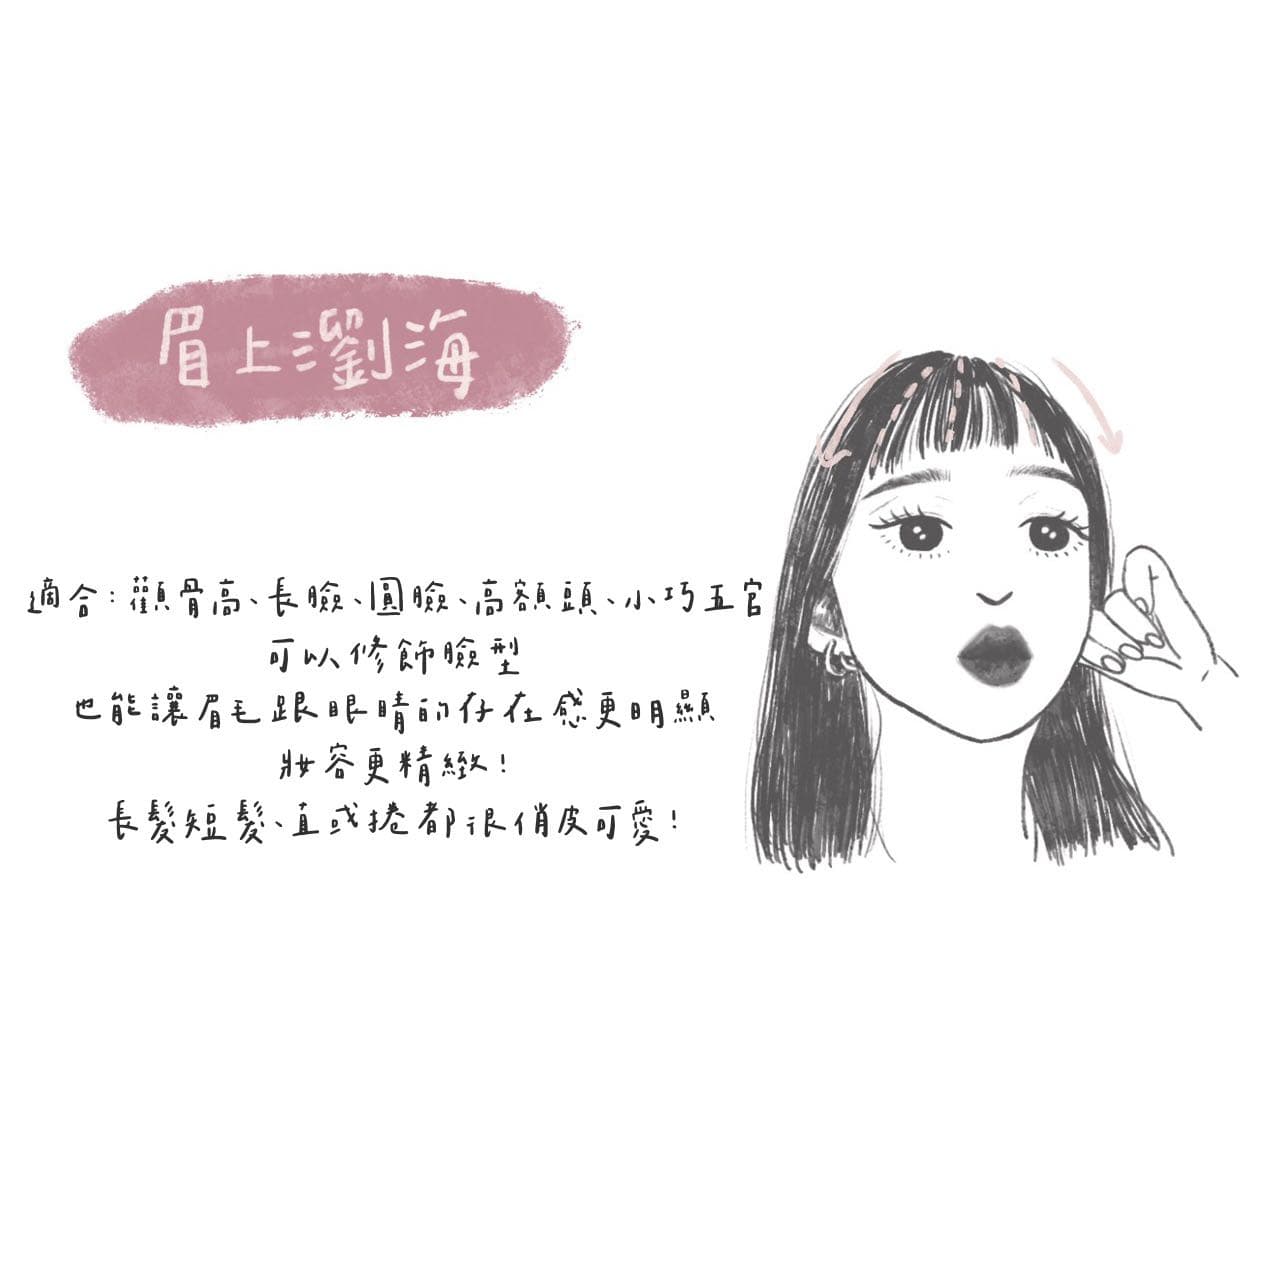 眉上瀏海
適合：顴骨高、長臉、圓臉、高額頭、小巧五官
可以修飾臉型
也能讓眉毛跟眼睛的存在感更明顯
妝容更精緻！
長髮短髮、直或捲都很俏皮可愛！